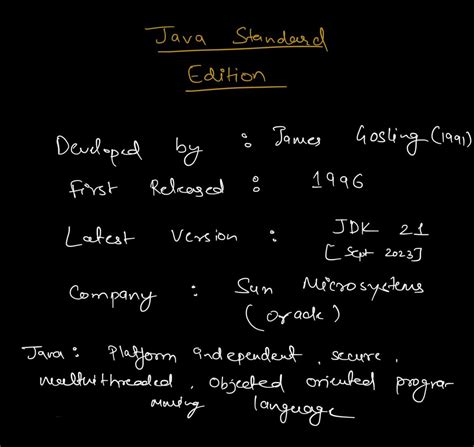 Java Standard
Edition
Developed by : James Gosling (1991)
First Released : 1996
Latest Version : JDK 21
[Sept 2023]
Company : Sun Microsystems
(Oracle)
Java : Platform independent, secure,
multithreaded, Objected oriented program
mming language